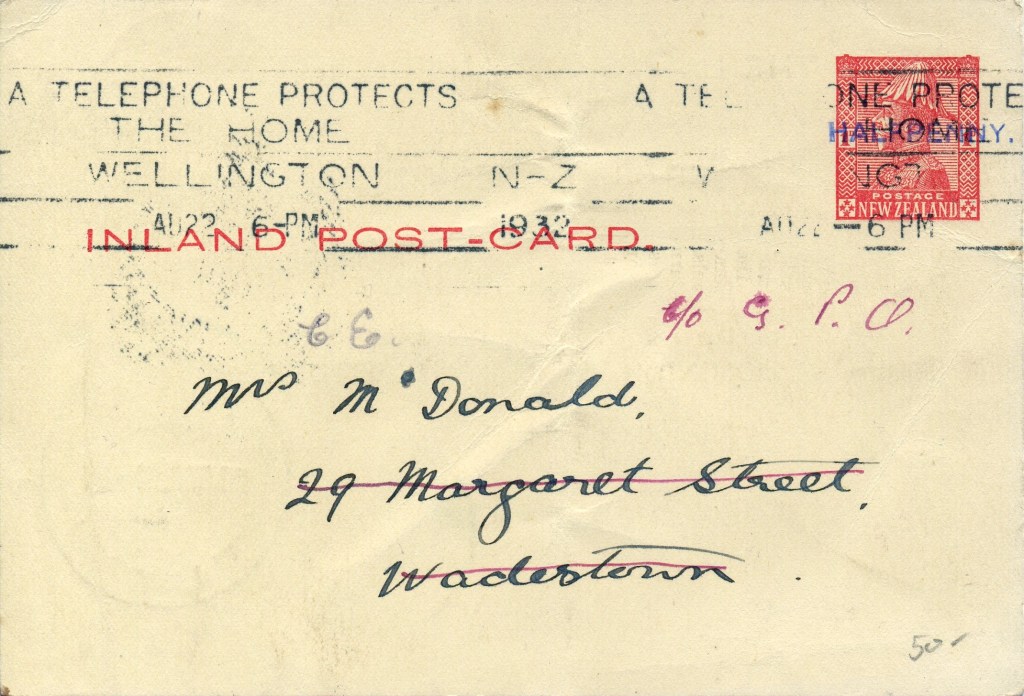 A TELEPHONE PROTECTS
THE HOME
WELLINGTON N-Z
AU22 6-PM 1932
A TE ONE PROTE
HOME
AU22 - 6 PM
HALFPENNY.
POSTAGE
NEW ZEALAND
INLAND POST-CARD.
C. E.
c/o G. P. O.
Mrs McDonald,
29 Margaret Street,
Wadestown.
50-